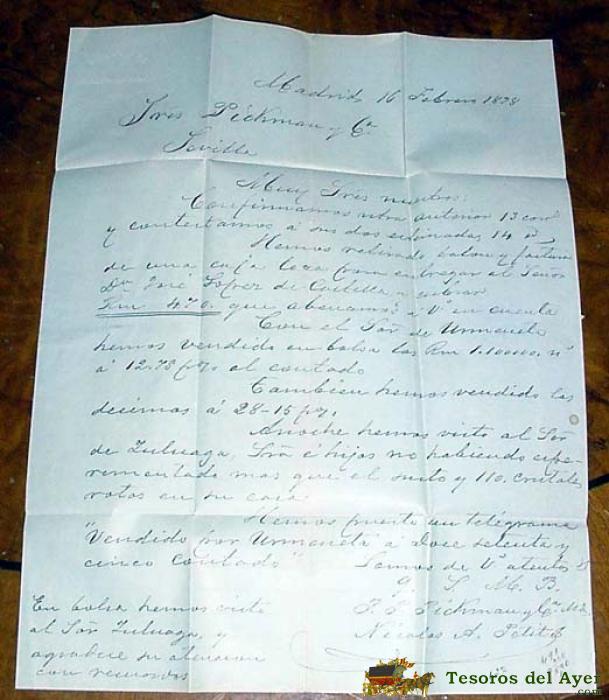 Madrid 16 Febrero 1878
Sres Pickman y Ca
Sevilla
Muy Sres nuestros:
Confirmamos ntra anterior 13 cort
y contestamos á sus dos estimadas 14 id,
Hemos retirado talon y factura
de una caja loza para entregar al Señor
Dn José Lopez de Castilla y cobrar
Rvn 476. que abonamos á Vs en cuenta
Con el Sor de Urmeneta
hemos vendido en bolsa los Rvn
á 12.75 p% al contado
Tambien hemos vendido las
decimas á 28-15 p%.
Anoche hemos visto al Sor
de Zuluaga, Sra é hijos no habiendo espe-
rimentado mas que el susto y 110. cristales
rotos en su casa
Hemos puesto un telégrama
"Vendido por Urmeneta á doce setenta y
cinco contado" Somos de Vs atentos S
Q. S. M. B.
P. P. Pickman y Ca
Nicolas A. Petit
En bolsa hemos visto
al Sor Zuluaga, y
agradece su atencion
con recuerdos
Tesoros del Ayer
.com